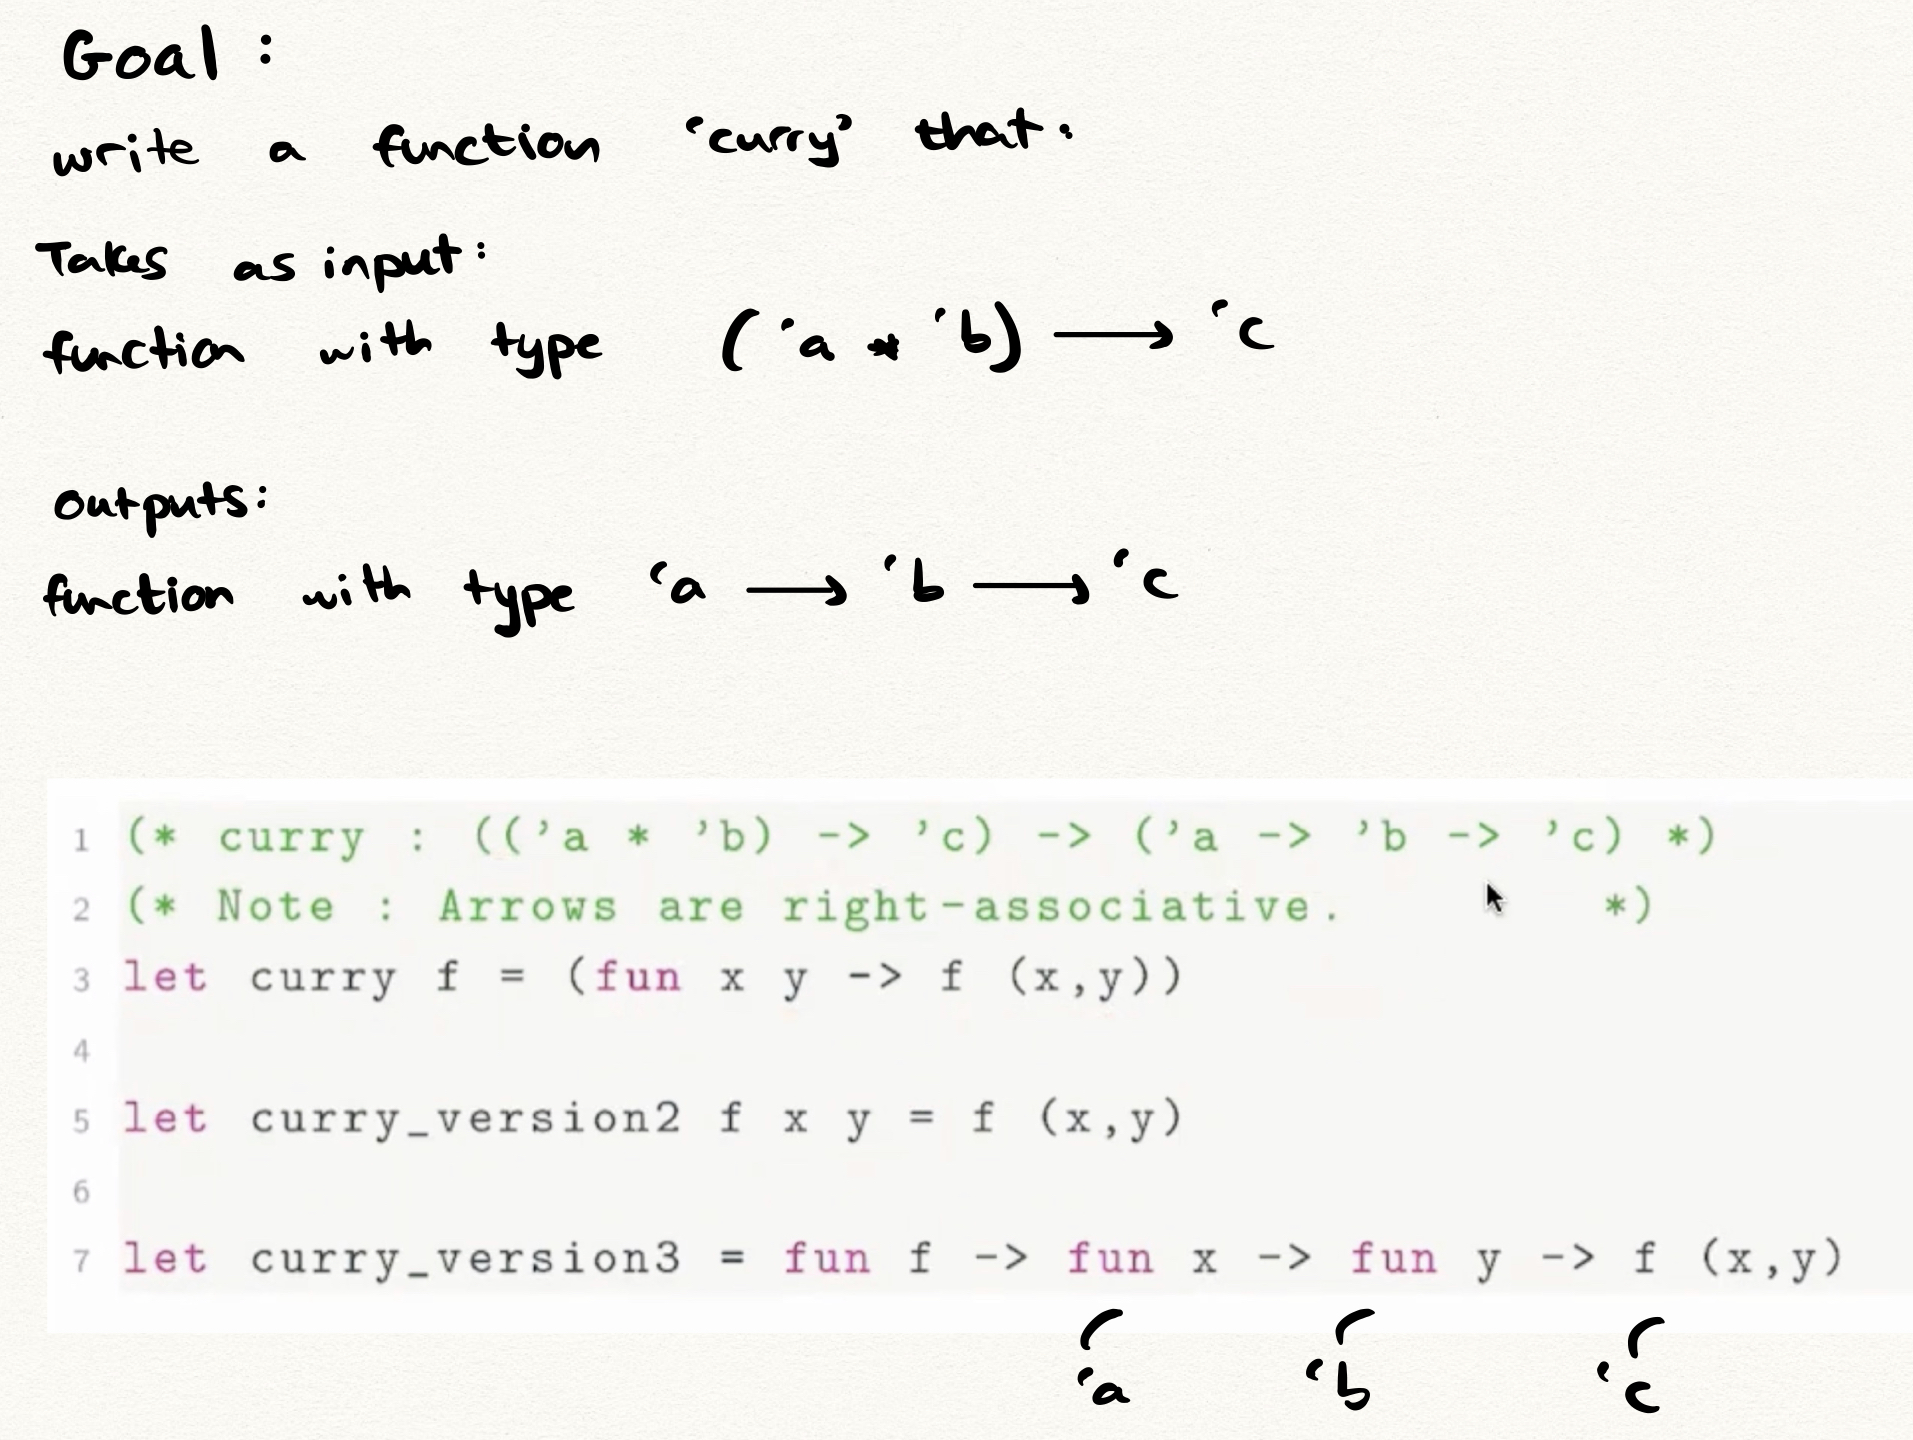 Goal :
write a function 'curry' that:
Takes as input:
function with type ('a * 'b) → 'c
outputs:
function with type 'a → 'b → 'c
1 (* curry : (('a * 'b) -> 'c) -> ('a -> 'b -> 'c) *)
2 (* Note : Arrows are right-associative. *)
3 let curry f = (fun x y -> f (x,y))
4
5 let curry_version2 f x y = f (x,y)
6
7 let curry_version3 = fun f -> fun x -> fun y -> f (x,y)
'a 'b 'c